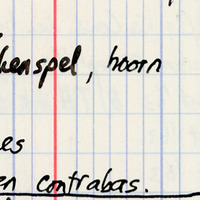 kenspel, hoorn
es
en contrabas.